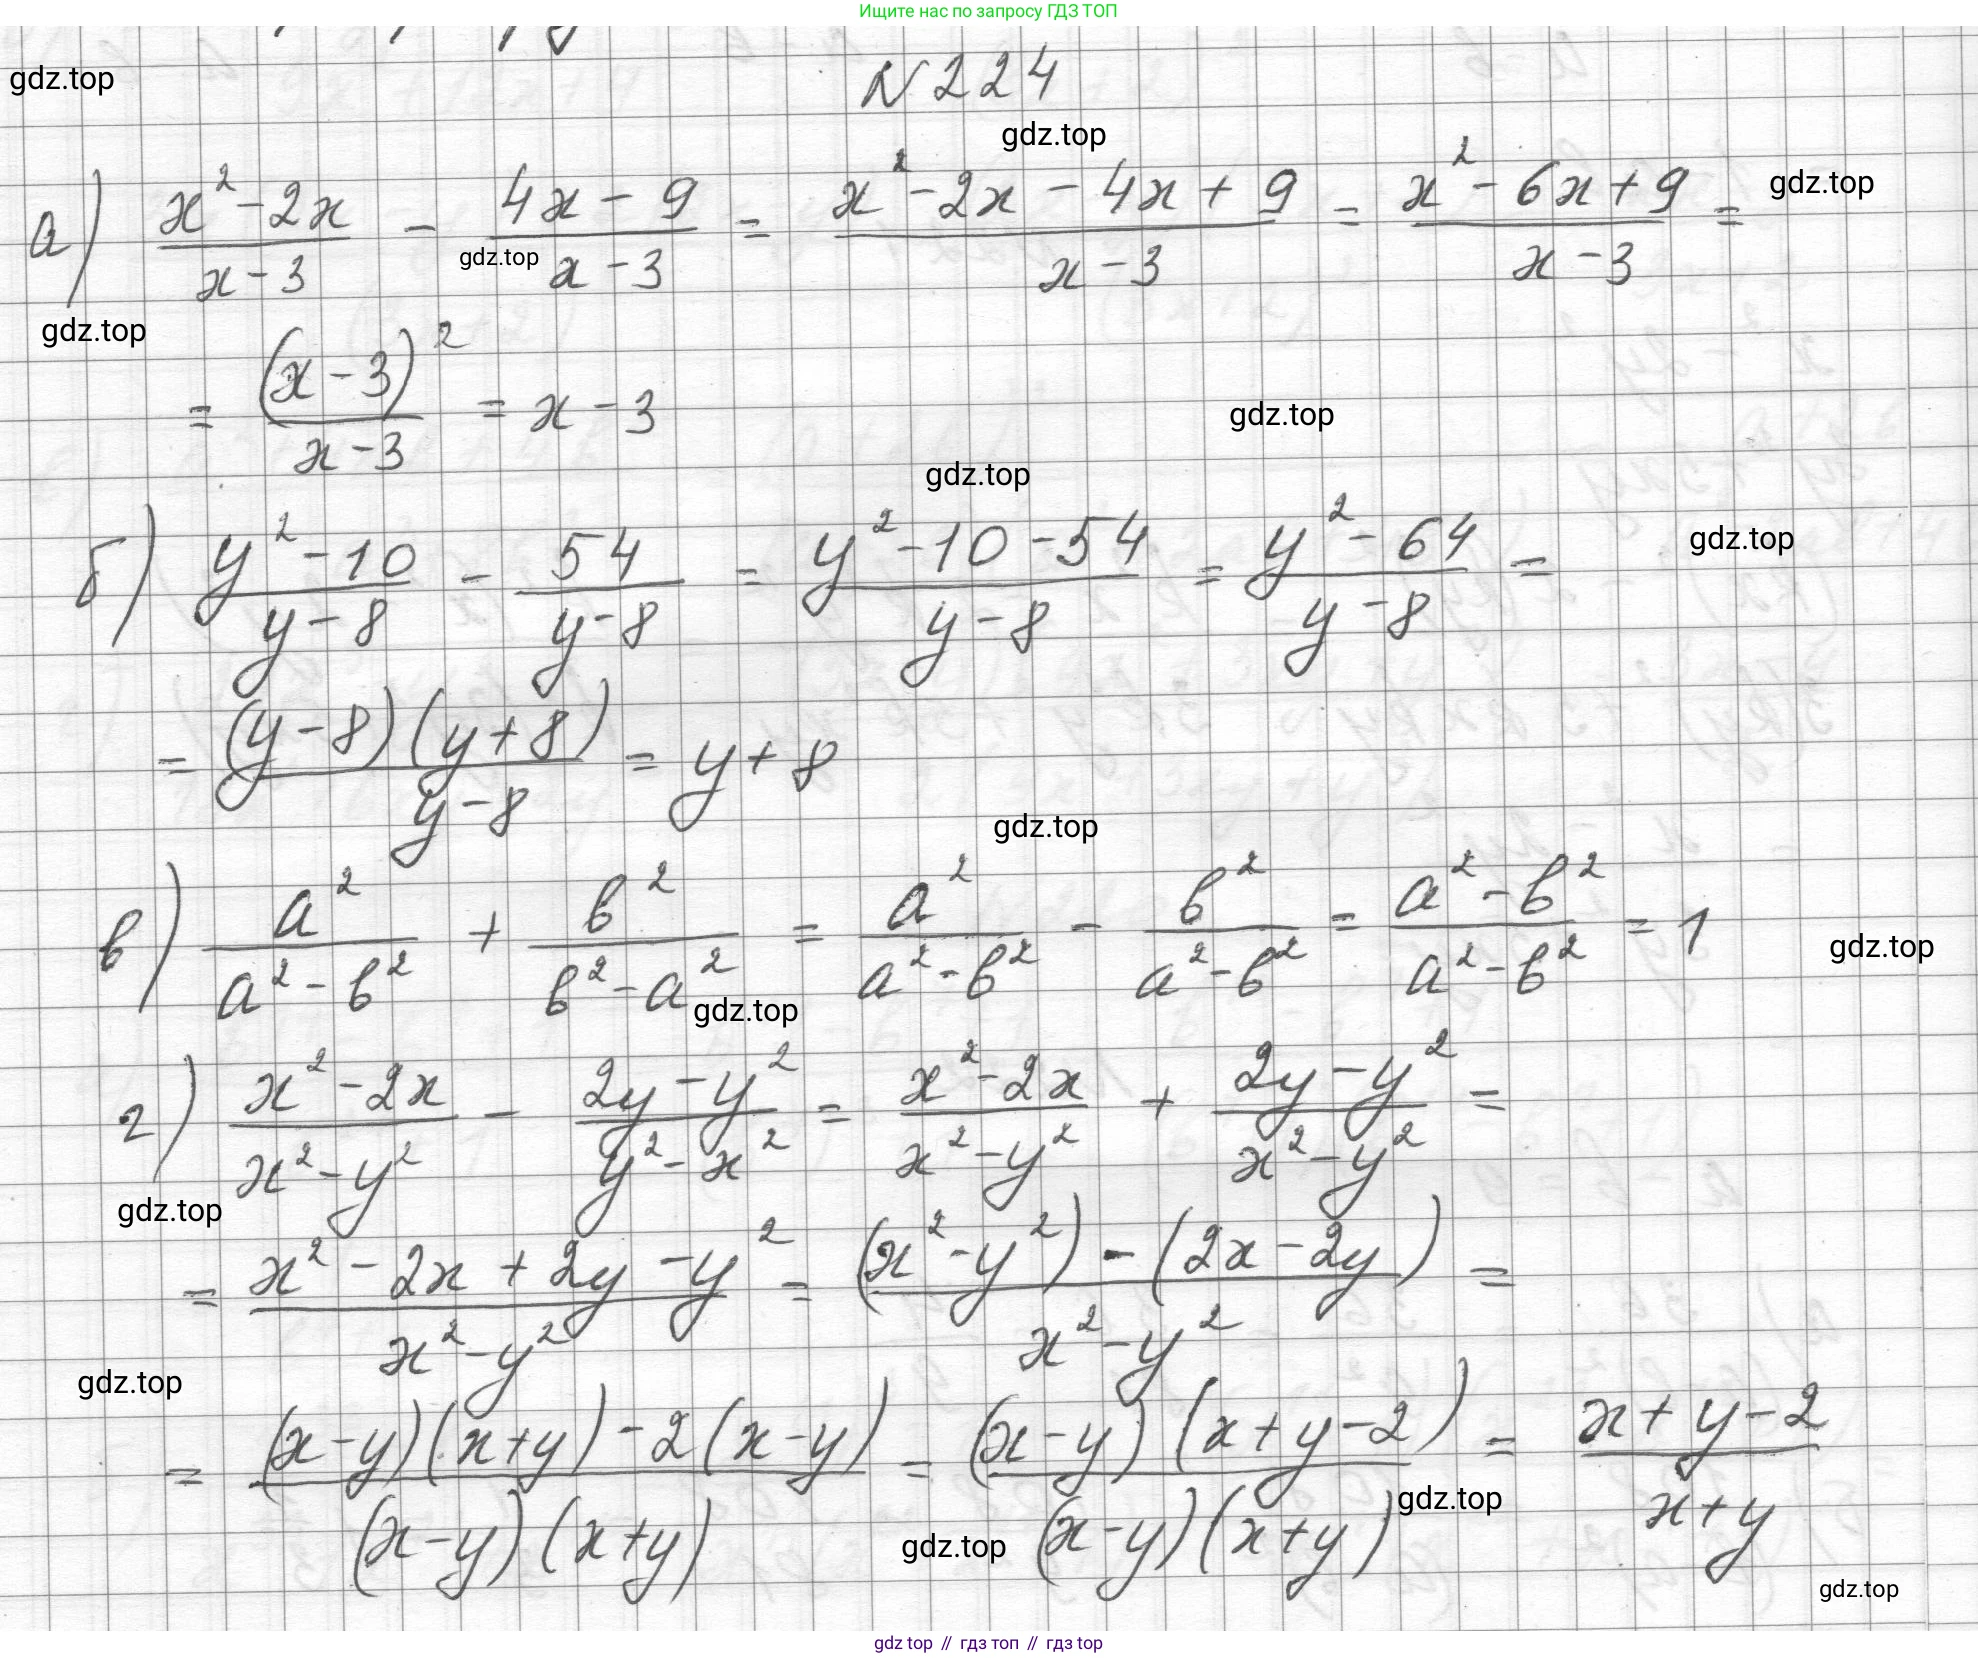 Ищите нас по запросу ГДЗ ТОП
N 224
gdz.top
gdz.top
а) (x² - 2x)/(x - 3) - (4x - 9)/(x - 3) = (x² - 2x - 4x + 9)/(x - 3) = (x² - 6x + 9)/(x - 3) =
gdz.top
gdz.top
gdz.top
= (x - 3)²/(x - 3) = x - 3
gdz.top
gdz.top
б) (y² - 10)/(y - 8) - 54/(y - 8) = (y² - 10 - 54)/(y - 8) = (y² - 64)/(y - 8) =
gdz.top
= (y - 8)(y + 8)/(y - 8) = y + 8
gdz.top
в) a²/(a² - b²) + b²/(b² - a²) = a²/(a² - b²) - b²/(a² - b²) = (a² - b²)/(a² - b²) = 1
gdz.top
gdz.top
г) (x² - 2x)/(x² - y²) - (2y - y²)/(y² - x²) = (x² - 2x)/(x² - y²) + (2y - y²)/(x² - y²) =
gdz.top
= (x² - 2x + 2y - y²)/(x² - y²) = ((x² - y²) - (2x - 2y))/(x² - y²) =
gdz.top
= ((x - y)(x + y) - 2(x - y))/((x - y)(x + y)) = (x - y)(x + y - 2)/((x - y)(x + y)) = (x + y - 2)/(x + y)
gdz.top
gdz.top
gdz.top
gdz top // гдз топ // гдз top